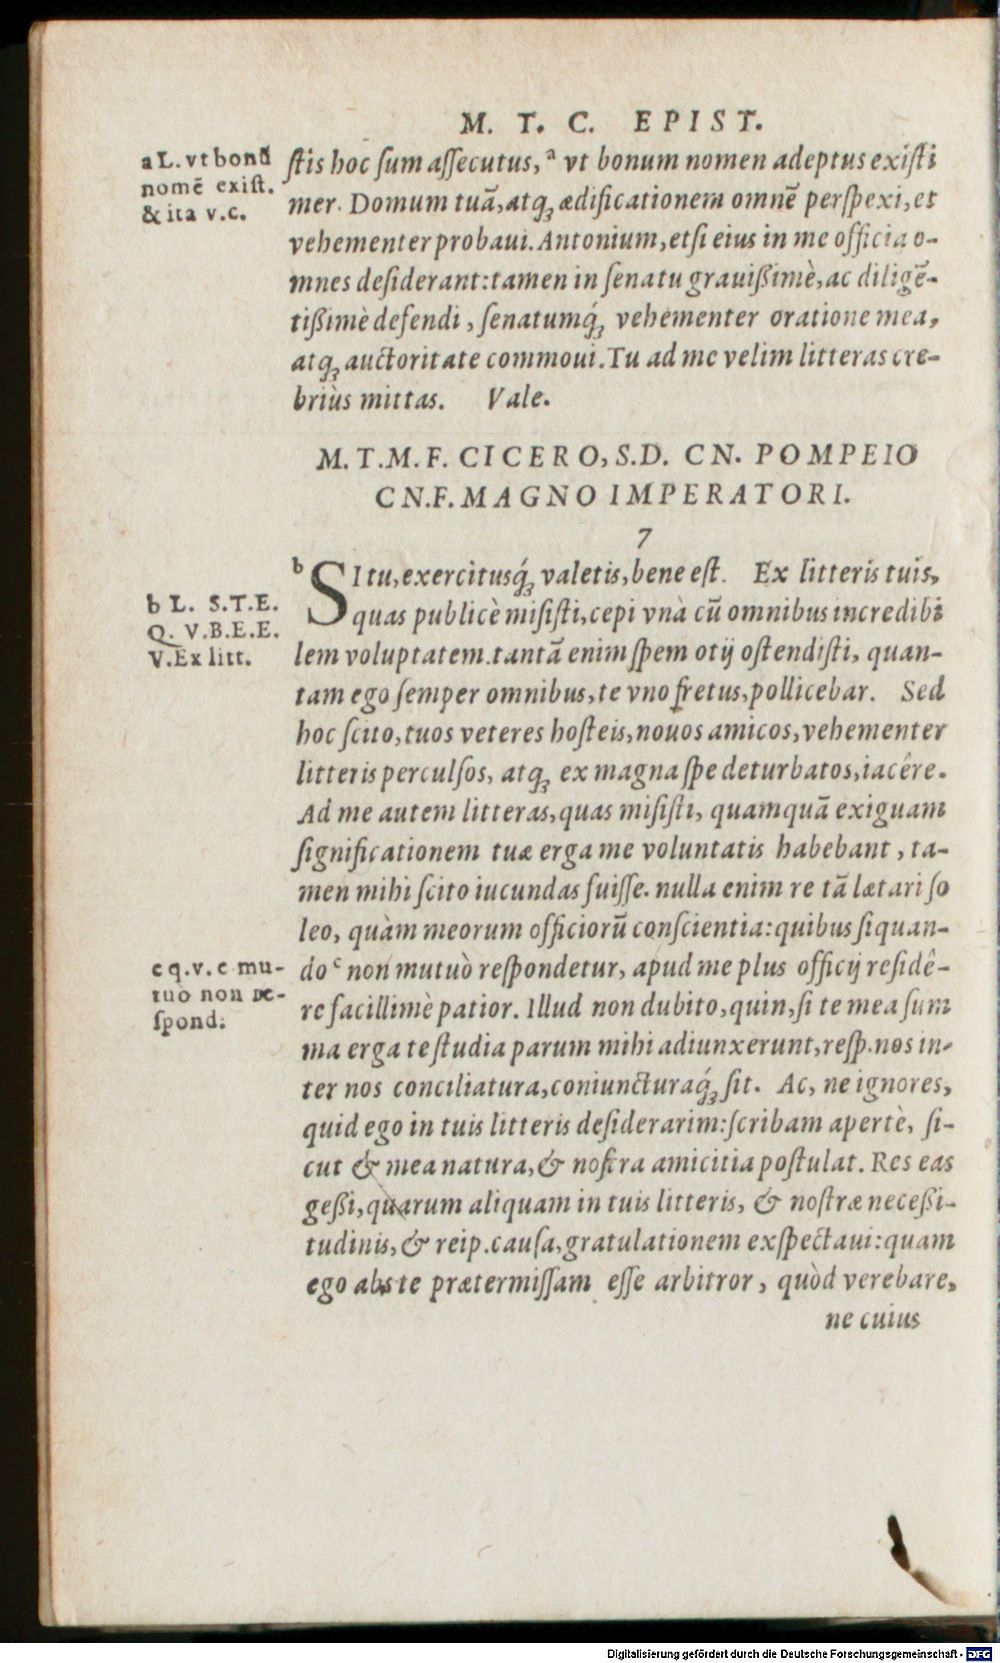 M. T. C. EPIST.
a L. vt bonũ
nomē exist.
& ita v.c.
ſtis hoc ſum aſſecutus, ᵃ vt bonum nomen adeptus exiſti
mer. Domum tuã, atq́; ædificationem omnē perſpexi, et
vehementer probaui. Antonium, etſi eius in me officia o-
mnes deſiderant: tamen in ſenatu grauißimè, ac diligē-
tißimè defendi, ſenatumq́; vehementer oratione mea,
atq; auctoritate commoui. Tu ad me velim litteras cre-
briùs mittas. Vale.
M. T. M. F. CICERO, S.D. CN. POMPEIO
CN. F. MAGNO IMPERATORI.
7
b L. S.T.E.
Q. V.B.E.E.
V. Ex litt.
ᵇ SI tu, exercitusq́; valetis, bene eſt. Ex litteris tuis,
quas publicè miſiſti, cepi vnà cũ omnibus incredibi
lem voluptatem. tantã enim ſpem otij oſtendiſti, quan-
tam ego ſemper omnibus, te vno fretus, pollicebar. Sed
hoc ſcito, tuos veteres hoſteis, nouos amicos, vehementer
litteris perculſos, atq; ex magna ſpe deturbatos, iacêre.
Ad me autem litteras, quas miſiſti, quamquã exiguam
ſignificationem tuæ erga me voluntatis habebant, ta-
men mihi ſcito iucundas fuiſſe. nulla enim re tã lætari ſo
leo, quàm meorum officiorũ conſcientia: quibus ſi quan-
c q.v.c mu-
tuo non re-
ſpond.
do ᶜ non mutuò reſpondetur, apud me plus officij reſidê-
re facillimè patior. Illud non dubito, quin, ſi te mea ſum
ma erga te ſtudia parum mihi adiunxerunt, reſp. nos in-
ter nos conciliatura, coniuncturaq́; ſit. Ac, ne ignores,
quid ego in tuis litteris deſiderarim: ſcribam apertè, ſi-
cut & mea natura, & noſtra amicitia poſtulat. Res eas
geßi, quarum aliquam in tuis litteris, & noſtræ neceßi-
tudinis, & reip. cauſa, gratulationem exſpectaui: quam
ego abs te prætermiſſam eſſe arbitror, quòd verebare,
ne cuius
Digitalisierung gefördert durch die Deutsche Forschungsgemeinschaft - DFG